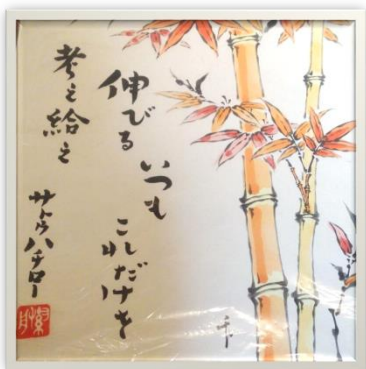 伸びる
いつも
これだけを
考え給え
サトウハチロー